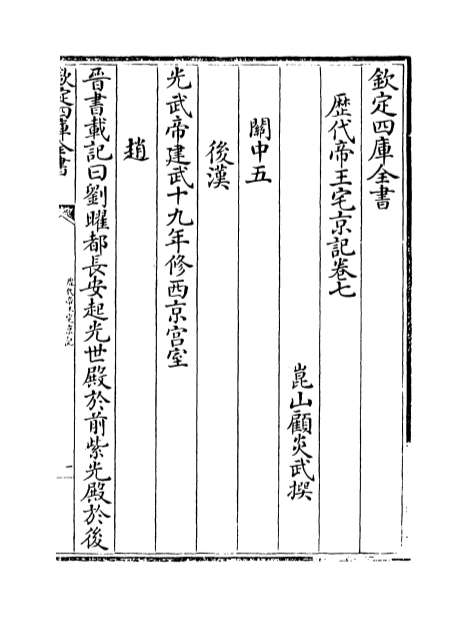 欽定四庫全書
歷代帝王宅京記卷七
崑山顧炎武撰
關中五
後漢
光武帝建武十九年修西京宫室
趙
晉書載記曰劉曜都長安起光世殿於前紫光殿於後
欽定四庫全書
歷代帝王宅京記